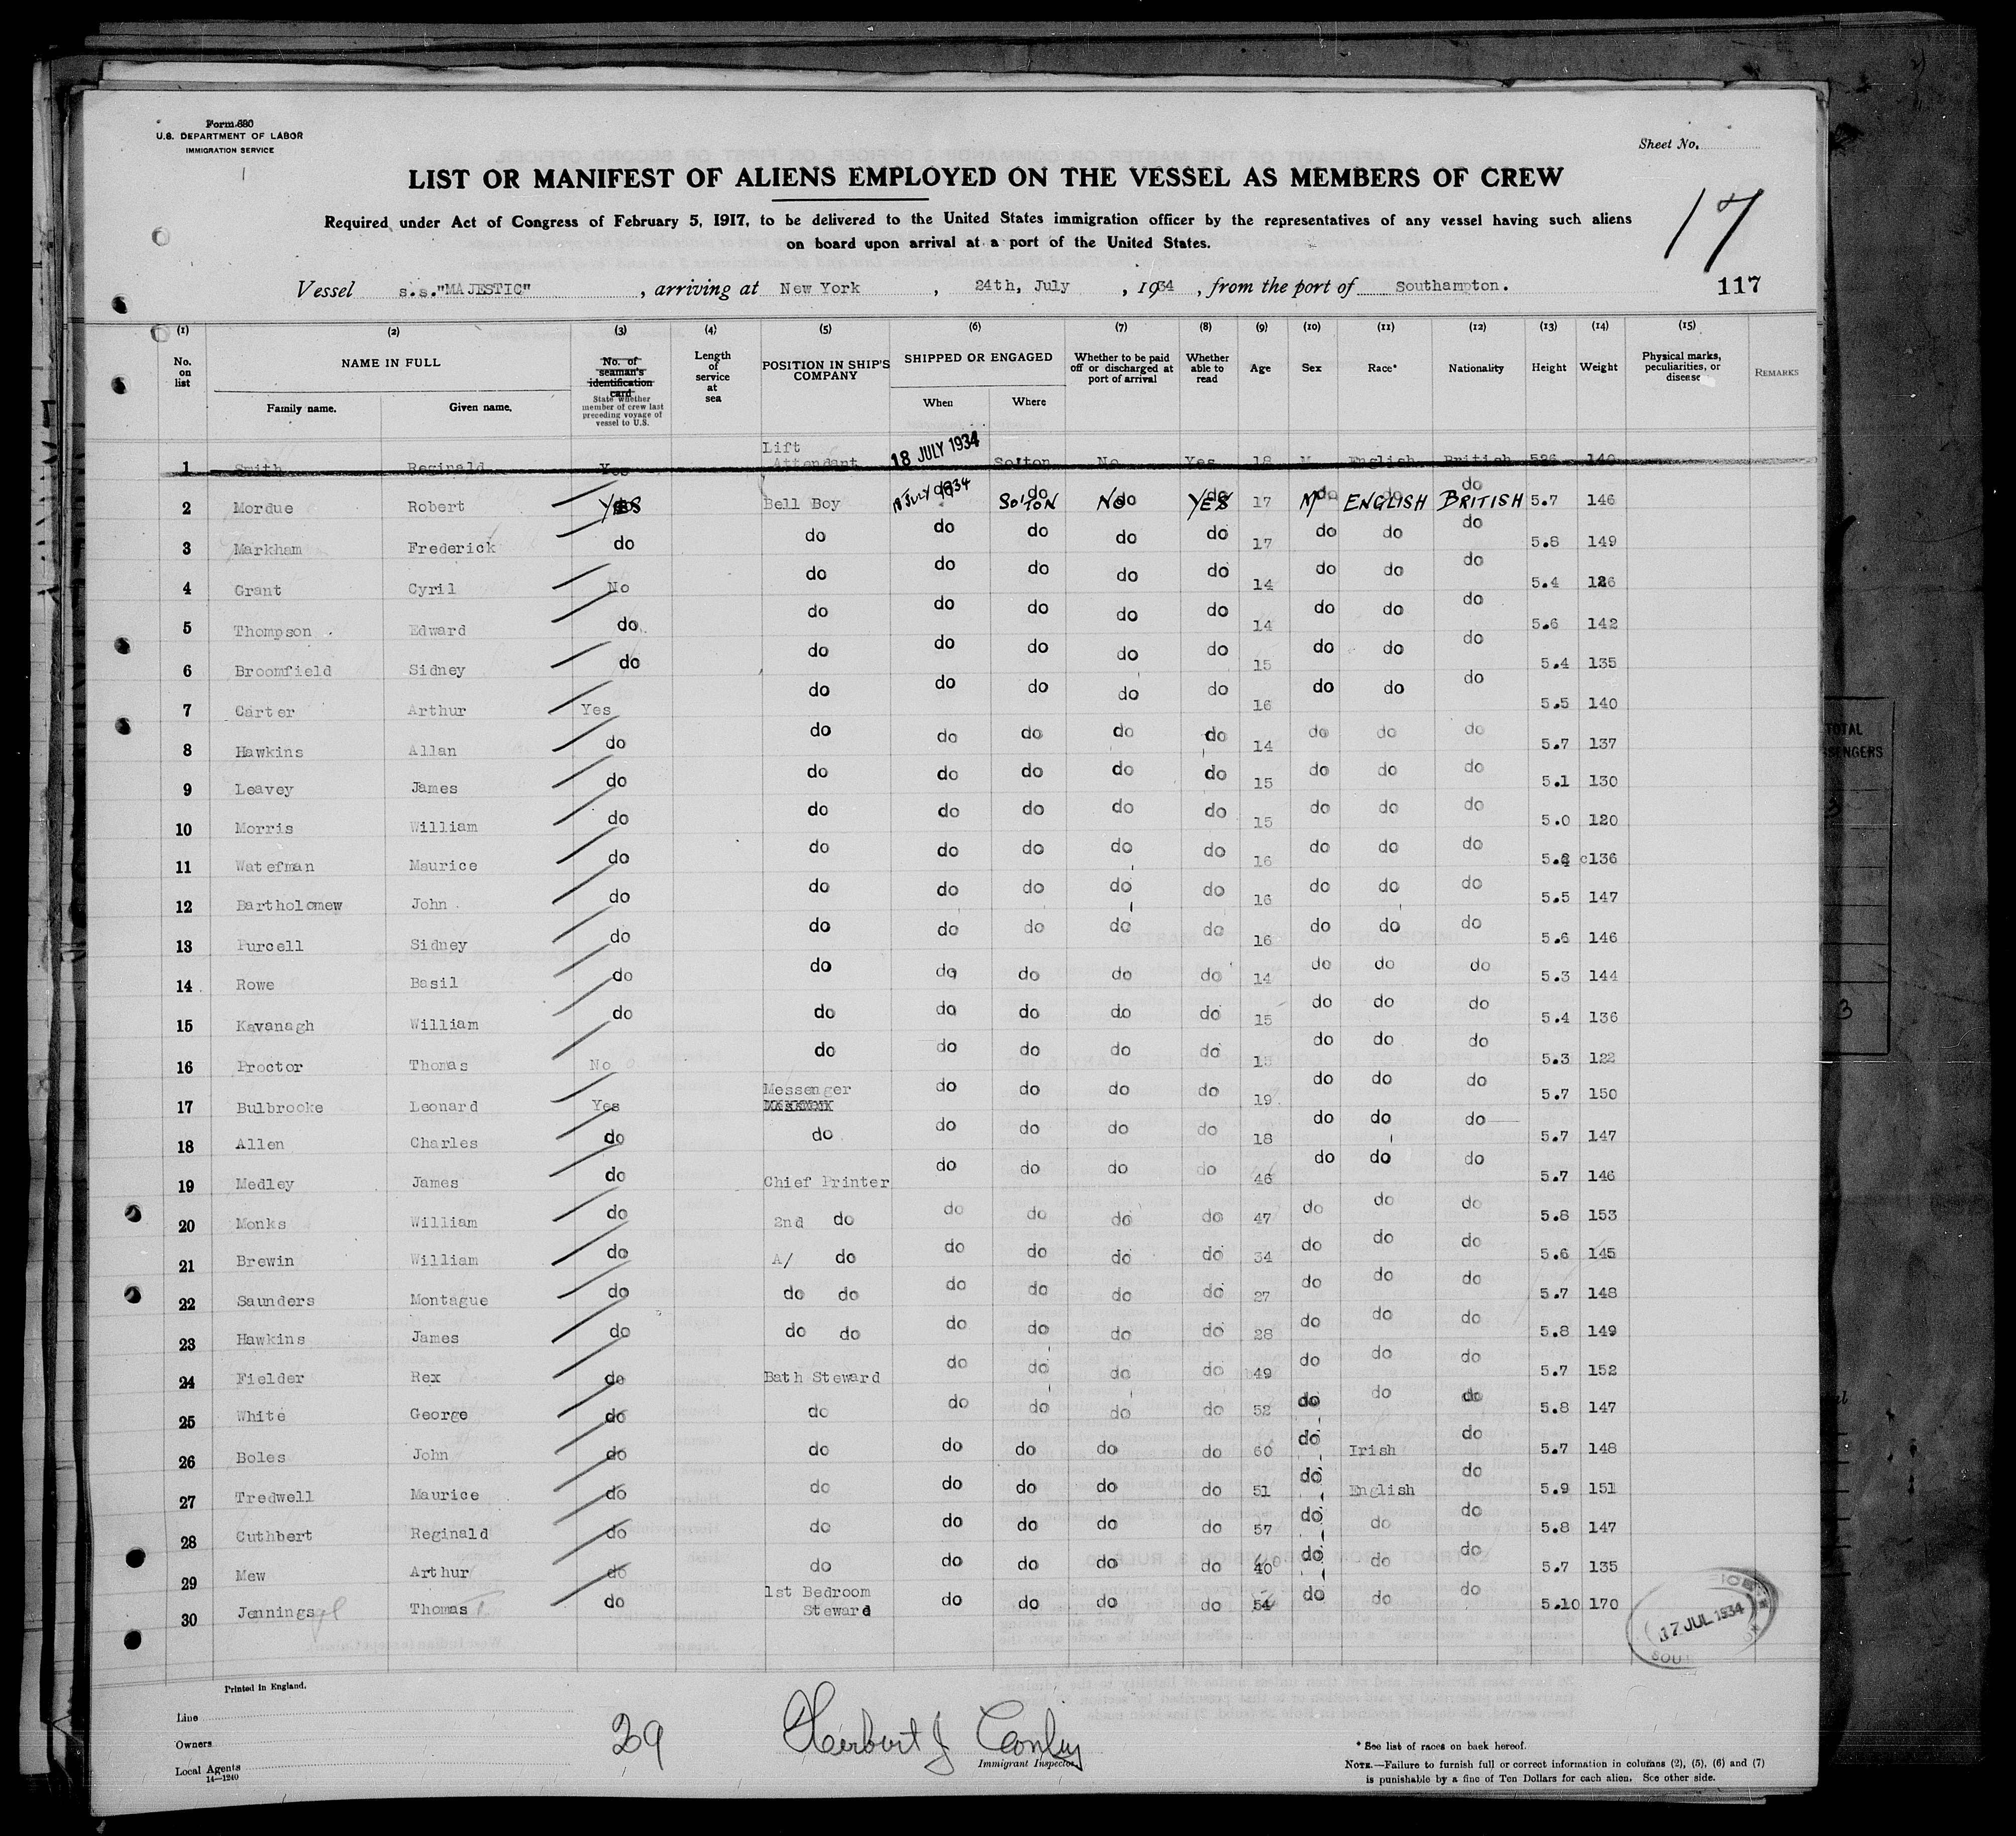 Form 680
U.S. DEPARTMENT OF LABOR
IMMIGRATION SERVICE
Sheet No.
LIST OR MANIFEST OF ALIENS EMPLOYED ON THE VESSEL AS MEMBERS OF CREW
17
Required under Act of Congress of February 5, 1917, to be delivered to the United States immigration officer by the representatives of any vessel having such aliens
on board upon arrival at a port of the United States.
Vessel s.s."MAJESTIC", arriving at New York, 24th, July, 1934, from the port of Southampton.
117
(1) (2) (3) (4) (5) (6) (7) (8) (9) (10) (11) (12) (13) (14) (15)
No. on list NAME IN FULL Family name. Given name. No. of seaman's identification card State whether member of crew last preceding voyage of vessel to U.S. Length of service at sea POSITION IN SHIP'S COMPANY SHIPPED OR ENGAGED When Where Whether to be paid off or discharged at port of arrival Whether able to read Age Sex Race* Nationality Height Weight Physical marks, peculiarities, or disease REMARKS
1 Smith Reginald Yes Lift Attendant 18 JULY 1934 So'ton No Yes 18 M English British 526 140
2 Mordue Robert YES Bell Boy 18 JULY 1934 SO'TON NO YES 17 M ENGLISH BRITISH 5.7 146
3 Markham Frederick do do do do do do 17 do do do 5.8 149
4 Grant Cyril No do do do do do 14 do do do 5.4 126
5 Thompson Edward do do do do do do 14 do do do 5.6 142
6 Broomfield Sidney do do do do do do 15 do do do 5.4 135
7 Carter Arthur Yes do do do do do 16 do do do 5.5 140
8 Hawkins Allan do do do do do do 14 do do do 5.7 137
9 Leavey James do do do do do do 15 do do do 5.1 130
10 Morris William do do do do do do 15 do do do 5.0 120
11 Waterman Maurice do do do do do do 16 do do do 136
12 Bartholomew John do do do do do do 16 do do do 5.5 147
13 Purcell Sidney do do do do do do 16 do do do 5.6 146
14 Rowe Basil do do do do do do 14 do do do 5.3 144
15 Kavanagh William do do do do do do 15 do do do 5.4 136
16 Proctor Thomas No do do do do do 15 do do do 5.3 122
17 Bulbrooke Leonard Yes Messenger do do do do 19 do do do 5.7 150
18 Allen Charles do do do do do do 18 do do do 5.7 147
19 Medley James do Chief Printer do do do do 46 do do do 5.7 146
20 Monks William do 2nd do do do do do 47 do do do 5.8 153
21 Brewin William do A/ do do do do do 34 do do do 5.6 145
22 Saunders Montague do do do do do do do 27 do do do 5.7 148
23 Hawkins James do do do do do do do 28 do do do 5.8 149
24 Fielder Rex do Bath Steward do do do do 49 do do do 5.7 152
25 White George do do do do do do 52 do do do 5.8 147
26 Boles John do do do do do do 60 do Irish do 5.7 148
27 Tredwell Maurice do do do do do do 51 do English do 5.9 151
28 Cuthbert Reginald do do do do do do 57 do do do 5.8 147
29 Mew Arthur do do do do do do 40 do do do 5.7 135
30 Jennings Thomas do 1st Bedroom Steward do do do do 54 do do do 5.10 170
17 JUL 1934
Printed in England.
Line
Owners
Local Agents
14—1240
29
Herbert J Conley
Immigrant Inspector.
* See list of races on back hereof.
NOTE.—Failure to furnish full or correct information in columns (2), (5), (6) and (7)
is punishable by a fine of Ten Dollars for each alien. See other side.
TOTAL